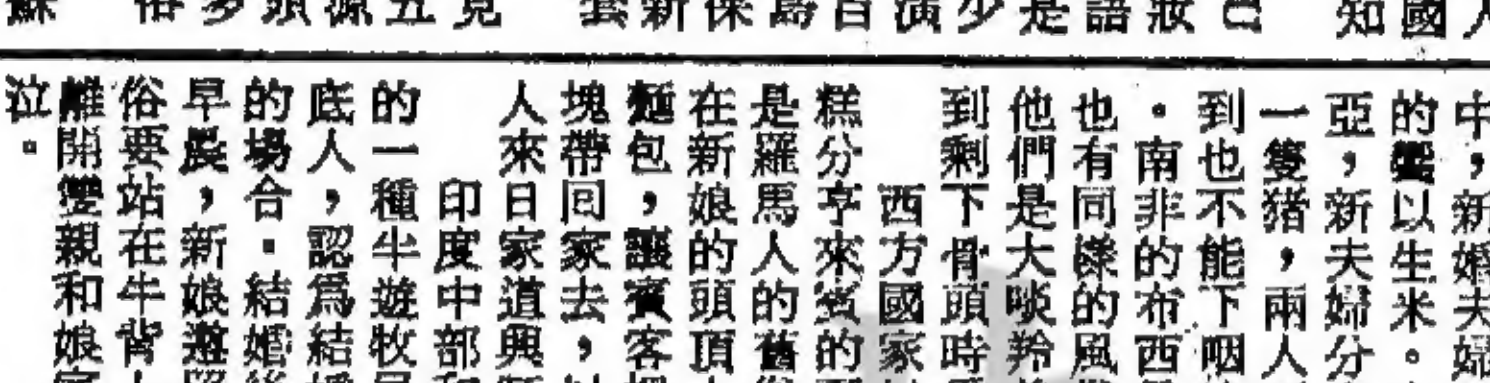 人
國知
巴
妝
語
是
少
演
百
島
保
新
套
見
五
源
頭
多
俗
蘇
中，新婚夫婦
的饗以生米。
亞，新夫婦分
一隻猪，兩人
到也不能下咽
。南非的布西
也有同樣的風
他們是大啖羚
到剩下骨頭時
西方國家
糕分享來賓的
是羅馬人的舊
在新娘的頭頂
麵包，讓賓客
塊帶回家去，
人來日家道興
印度中部
的一種半遊牧
底人，認爲結
的場合。結婚
早晨，新娘邀
俗要站在牛背
離開雙親和娘
泣。